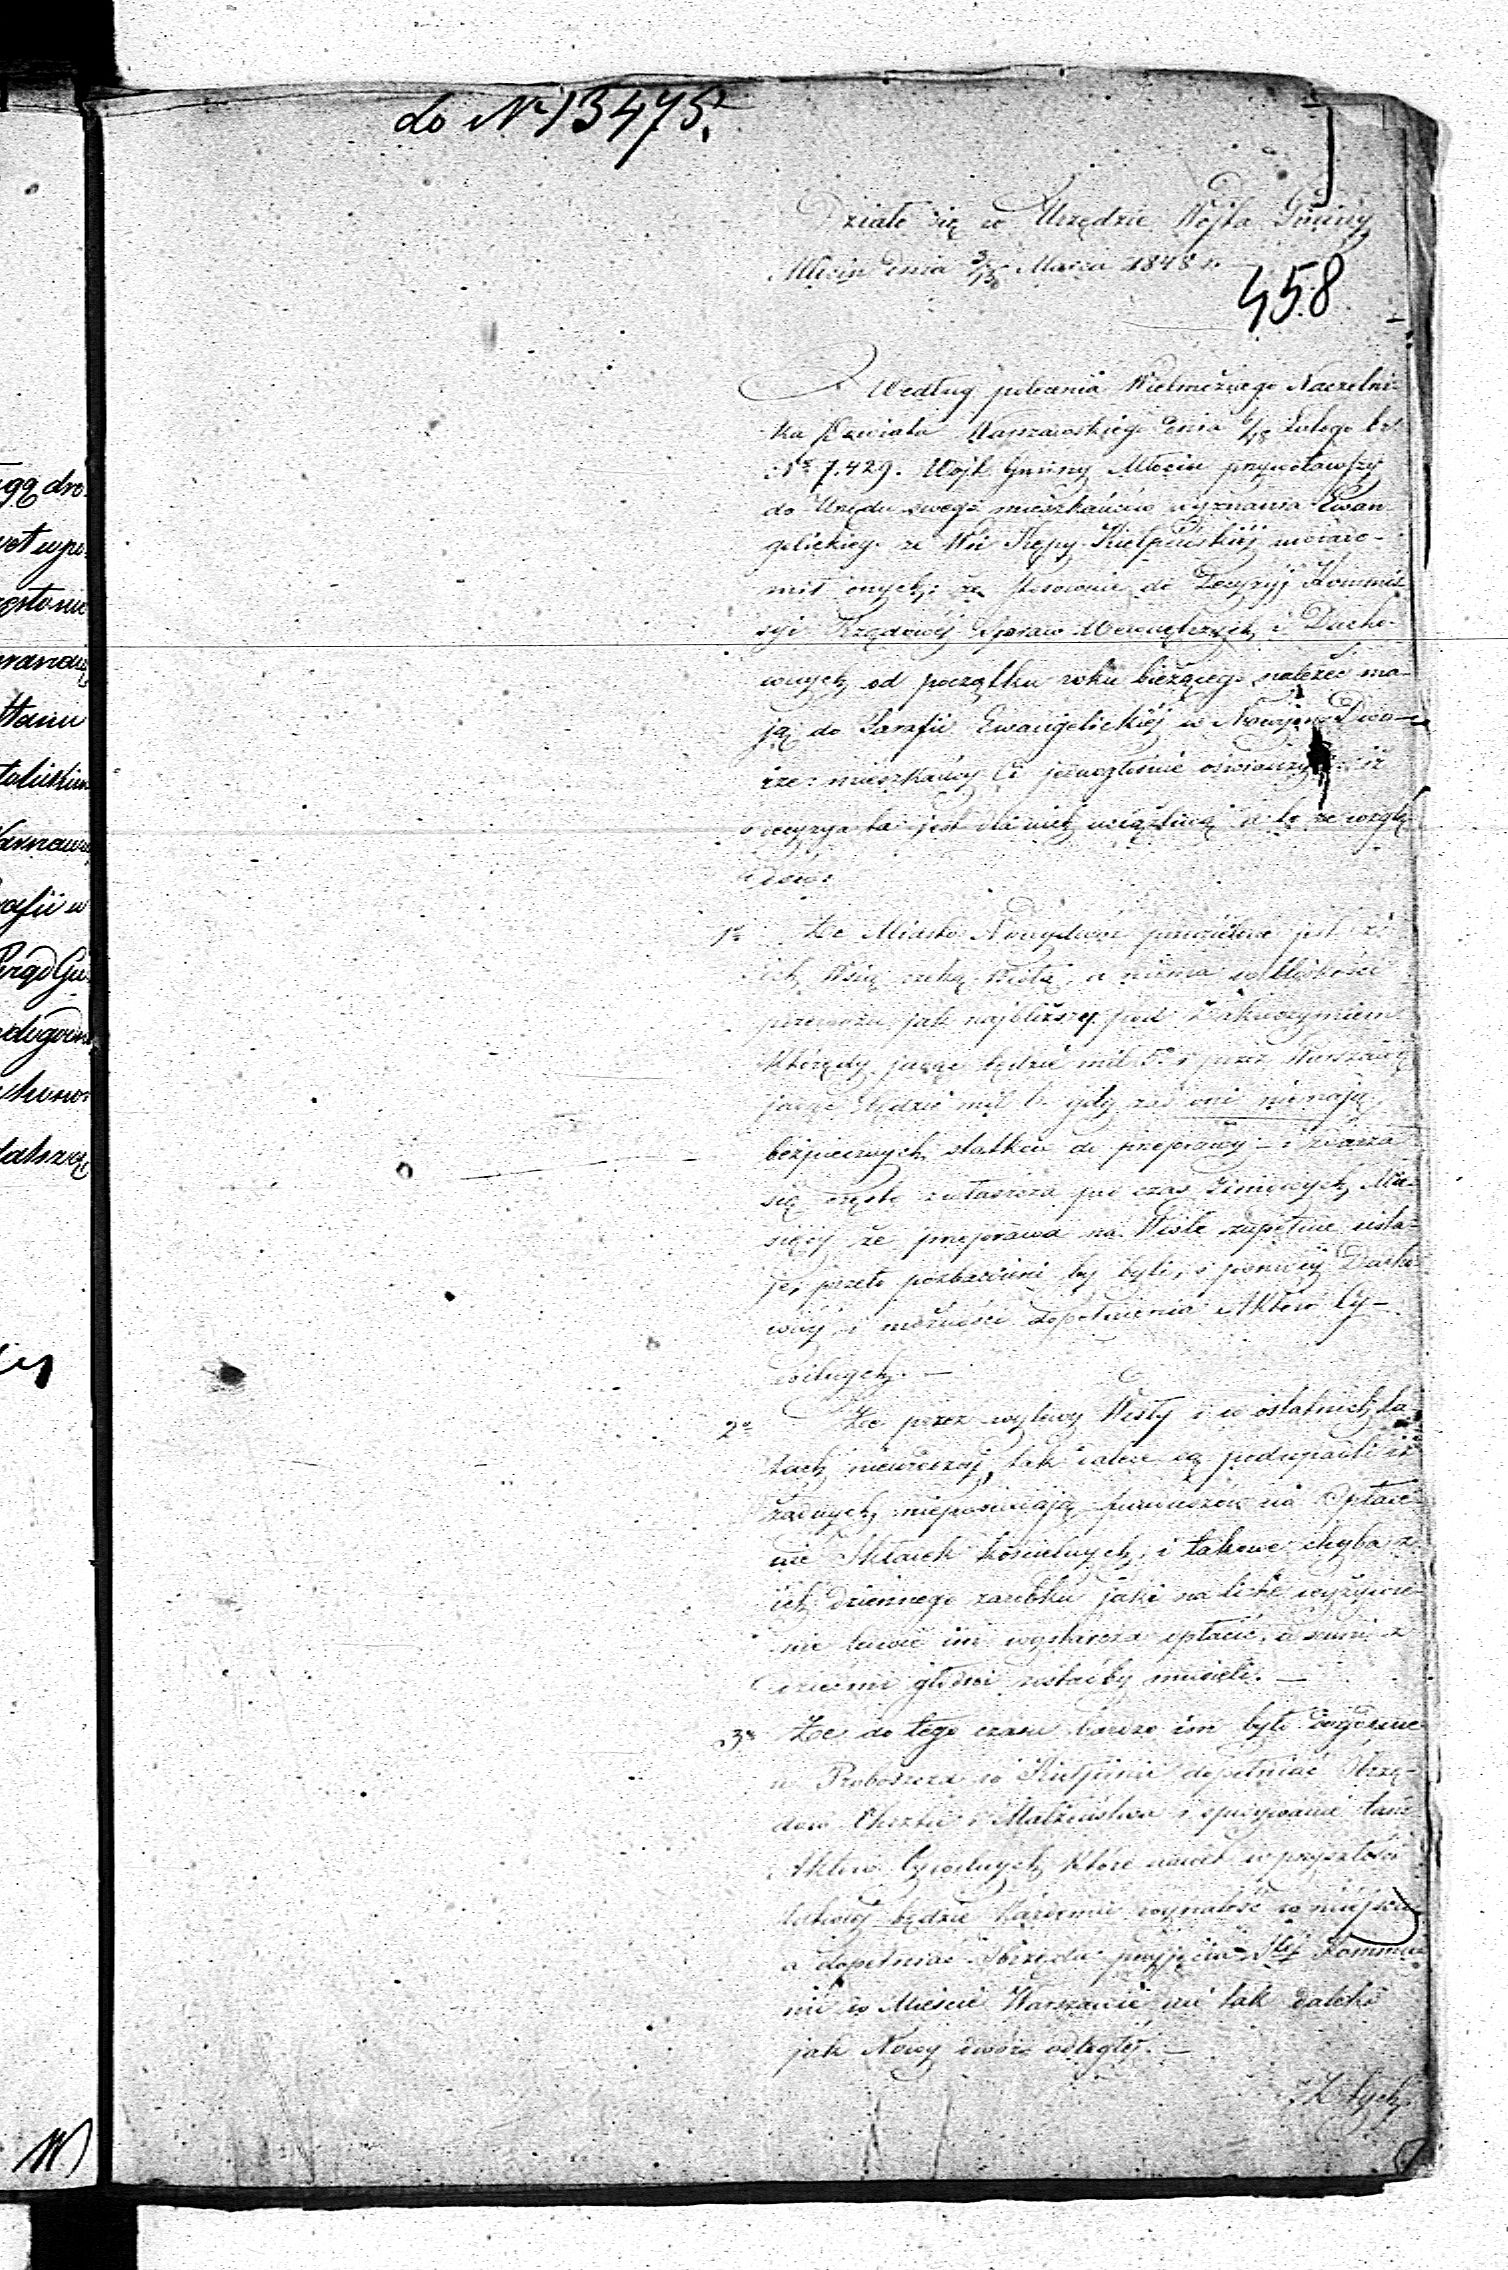 do Nr 13475.
Działo się w Urzędzie Wójta Gminy
Młocin dnia 3/15 Marca 1848 r.
458
Według polecenia Wielmożnego Naczelni-
ka Powiatu Warszawskiego dnia 6/18 Lutego br
Nr 7.429. Wójt Gminy Młocin przywoławszy
do Urzędu swego mieszkańców wyznania Ewan
gelickiego ze Wsi Kępy Kiełpińskiej uwiado-
mił onych, że stosownie do Decyzyi Kommis
syi Rządowej Spraw Wewnętrznych i Ducho-
wnych od początku roku bieżącego należeć ma-
ją do Parafii Ewangelickiej w Nowym Dwo-
rze: mieszkańcy Ci jednogłośnie oświadczyli iż
decyzya ta jest dla nich uciążliwą a to ze wzglę
dów:
1o Że Miasto Nowydwór przedzielone jest od
ich Wsią rzeką Wisłą, a niema w bliskości
przewozu jak najbliższy pod Zakroczymiem
którędy jadąc będzie mil 5. i przez Warszawę
jadąc będzie mil 6. gdy zaś oni nie mają
bezpiecznych statków do przeprawy - i zdarza
się często zwłaszcza po czas zimowych Mie-
sięcy że przeprawa na Wiśle zupełnie usta-
je, przeto pozbawieni by byli, i pomocy Ducho-
wnej i możności dopełnienia Aktów Cy-
wilnych. -
2o Że przez wylewy Wisły i w ostatnich la-
tach nieurodzaj, tak dalece są podupadli iż
żadnych nieposiadają funduszów na Opłace-
nie Składek kościelnych, i takowe chyba z
ich dziennego zarobku jaki na liche wyżywie-
nie ledwie im wystarcza opłacić, a sami z
dziećmi głodni zostaćby musieli. -
3o Że do tego czasu bardzo im było dogodnie
u Proboszcza w Kiełpinie dopełniać Obrzę-
dów Chrztu i Małżeństwa i spisywanie tam
Aktów Cywilnych które nawet w przyszłości
łatwiej będzie każdemu wynaleść w miejscu
a dopełniać Obrzędu przyjęcia Stej Kommu
nii w Mieście Warszawie nie tak daleko
jak Nowy dwór odległej. -
Z tych